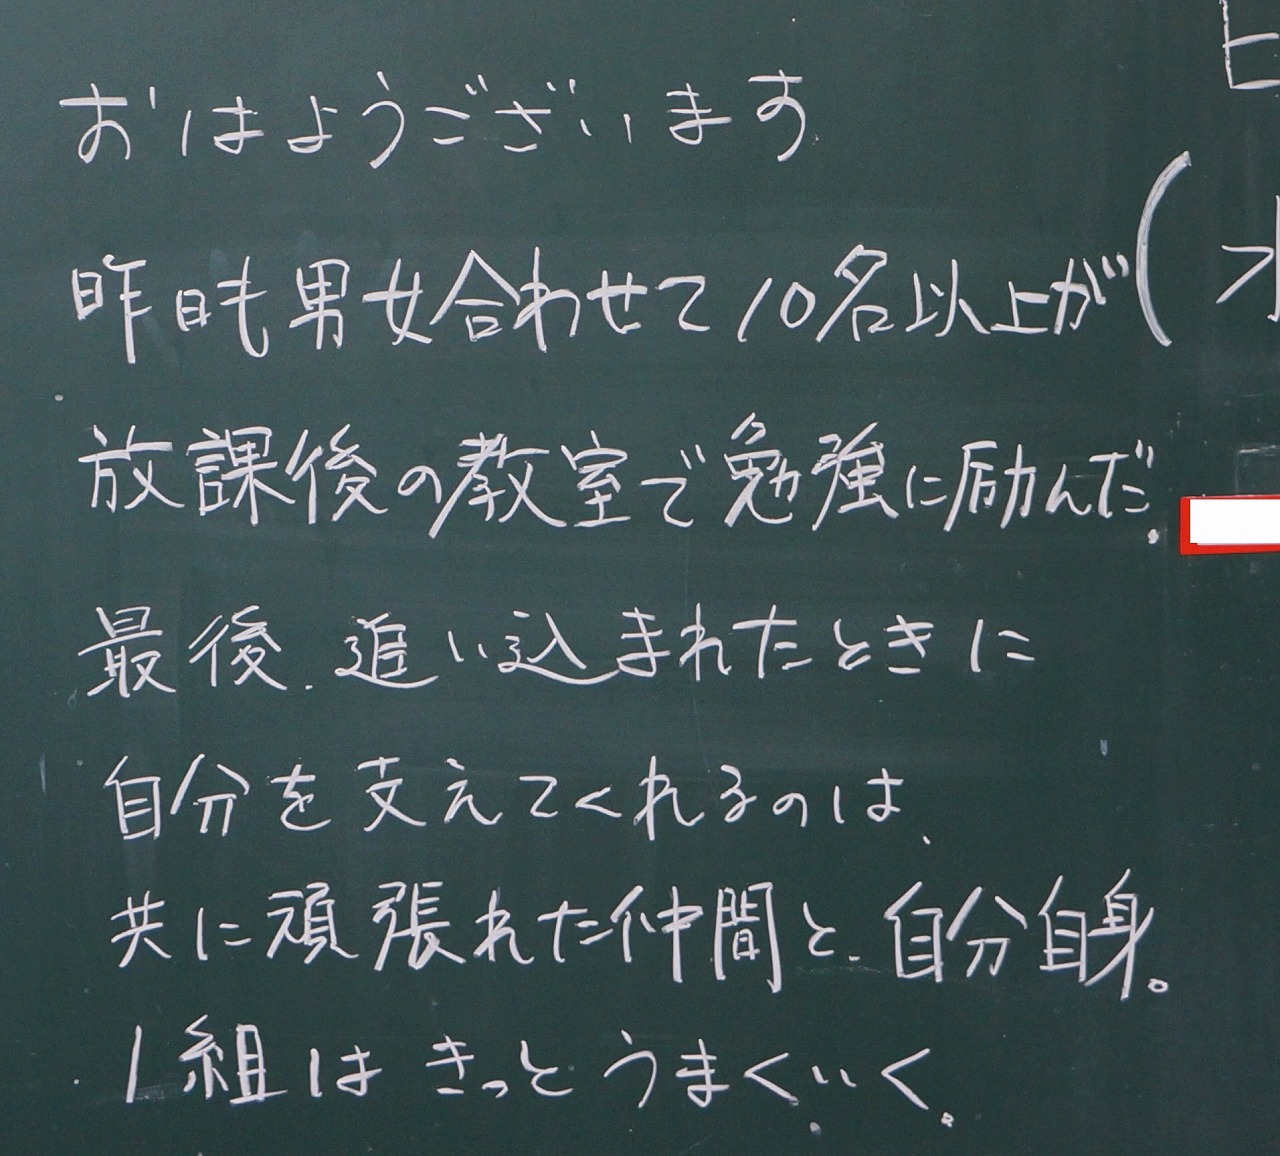 おはようございます
昨日も男女合わせて10名以上が
放課後の教室で勉強に励んだ。
最後、追い込まれたときに
自分を支えてくれるのは、
共に頑張れた仲間と、自分自身。
1組はきっとうまくいく。